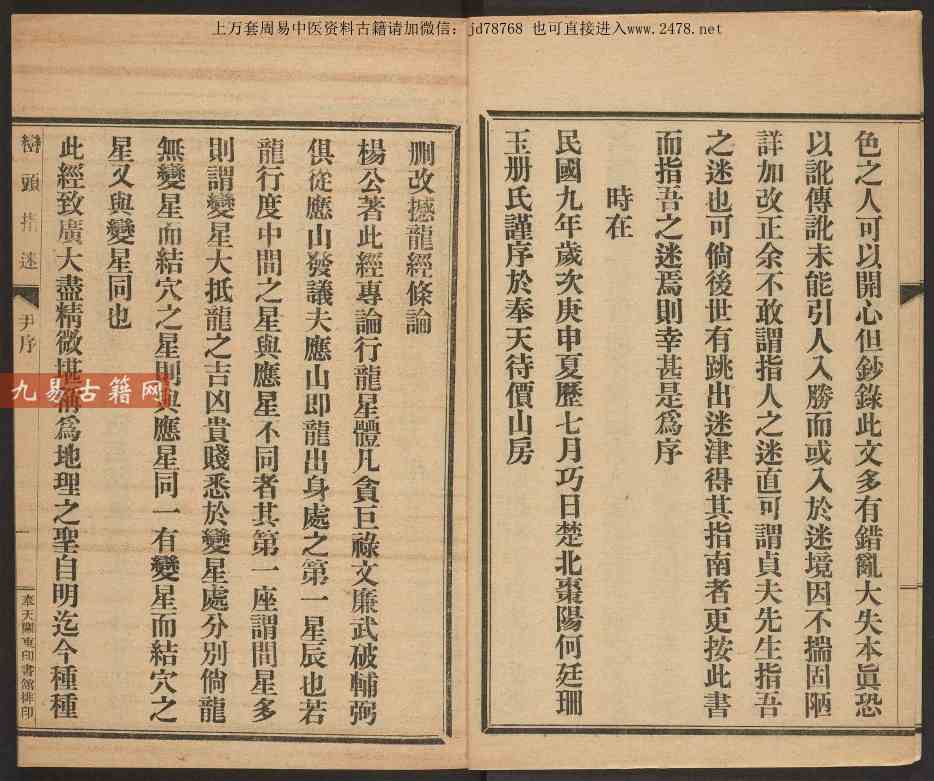 上万套周易中医资料古籍请加微信：jd78768 也可直接进入www.2478.net
色之人可以開心但鈔錄此文多有錯亂大失本眞恐
以訛傳訛未能引人入勝而或入於迷境因不揣固陋
詳加改正余不敢謂指人之迷直可謂貞夫先生指吾
之迷也可倘後世有跳出迷津得其指南者更按此書
而指吾之迷焉則幸甚是爲序
時在
民國九年歲次庚申夏歷七月巧日楚北棗陽何廷珊
玉册氏謹序於奉天待價山房
刪改撼龍經條論
楊公著此經專論行龍星體凡貪巨祿文廉武破輔弼
俱從應山發議夫應山即龍出身處之第一星辰也若
龍行度中間之星與應星不同者其第一座謂間星多
則謂變星大抵龍之吉凶貴賤悉於變星處分別倘龍
無變星而結穴之星則與應星同一有變星而結穴之
星又與變星同也
此經致廣大盡精微堪稱爲地理之聖自明迄今種種
巒頭指迷
尹序
奉天關東印書館排印
九易古籍网